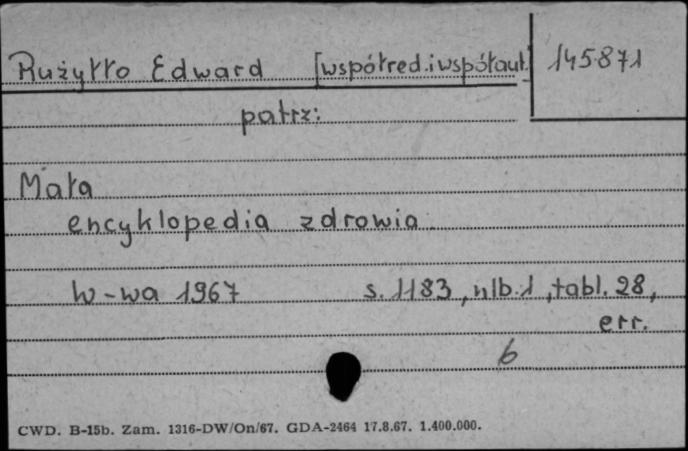 Rużyłło Edward [współred.i współaut.] 145871
patrz:
Mała
encyklopedia zdrowia.
W-wa 1967 s. 1183, nlb.1, tabl. 28,
err.
6
CWD. B-15b. Zam. 1316-DW/On/67. GDA-2464 17.8.67. 1.400.000.